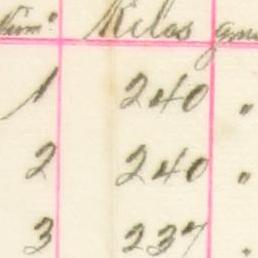 Núm° Kilos gms
1 240 "
2 240 "
3 237 "